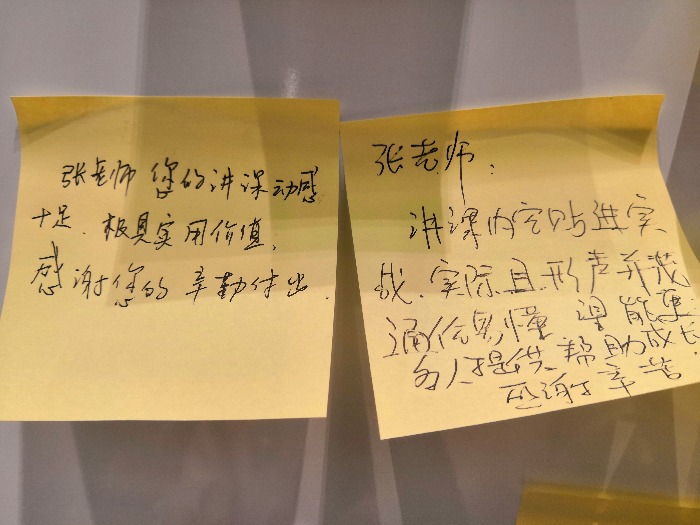 张老师 您的讲课动感
十足、极具实用价值、
感谢您的辛勤付出.
张老师:
讲课内容贴进实
战、实际且形声并茂
通俗易懂 望能更
多人提供帮助成长
感谢辛苦